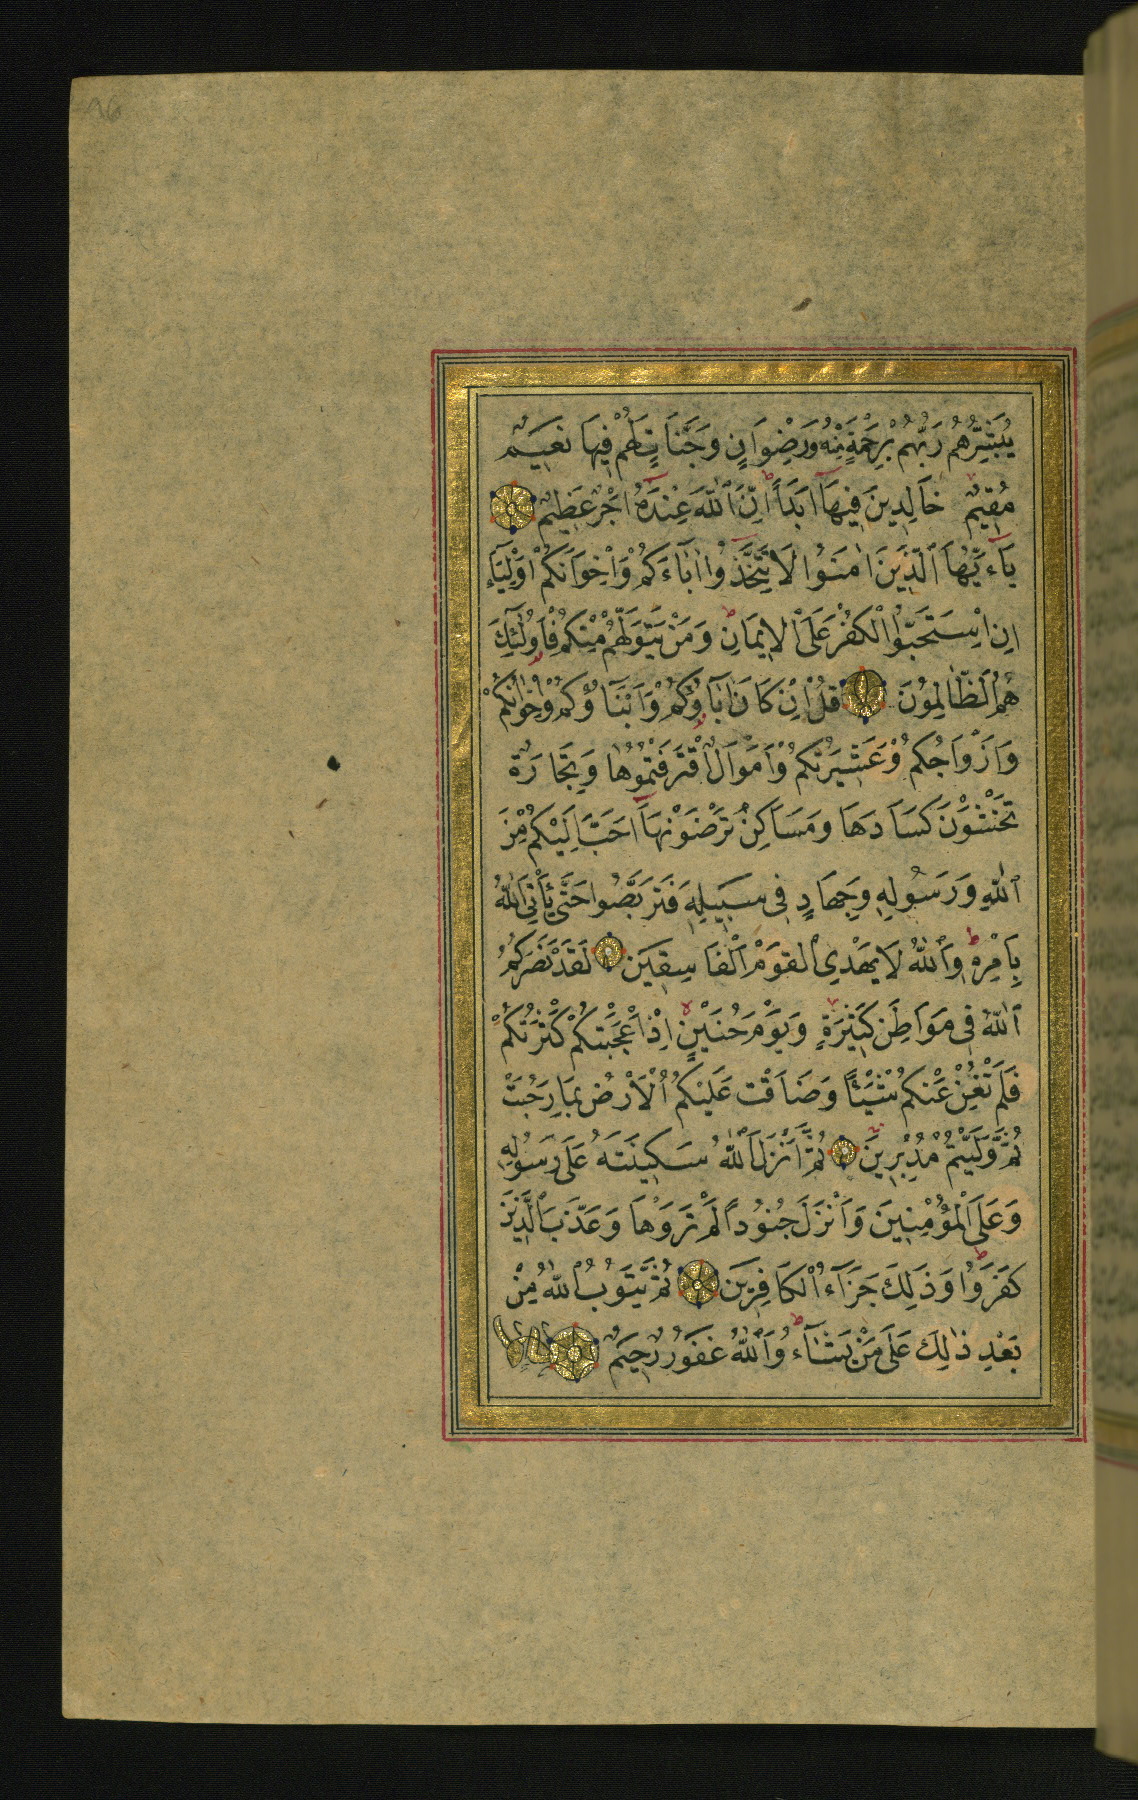 يُبَشِّرُهُمْ رَبُّهُمْ بِرَحْمَةٍ مِنْهُ وَرِضْوَانٍ وَجَنَّاتٍ لَهُمْ فِيهَا نَعِيمٌ
مُقِيمٌ خَالِدِينَ فِيهَا اَبَدًا اِنَّ ٱللّٰهَ عِنْدَهُ اَجْرٌ عَظِيمٌ
يَاءَيُّهَا ٱلَّذِينَ اٰمَنُوا لَا تَتَّخِذُوا اٰبَاءَكُمْ وَاِخْوَانَكُمْ اَوْلِيَاءَ
اِنِ اسْتَحَبُّوا ٱلْكُفْرَ عَلَى ٱلْاِيمَانِ وَمَنْ يَتَوَلَّهُمْ مِنْكُمْ فَاُولٰئِكَ
هُمُ ٱلظَّالِمُونَ قُلْ اِنْ كَانَ اٰبَاؤُكُمْ وَاَبْنَاؤُكُمْ وَاِخْوَانُكُمْ
وَاَزْوَاجُكُمْ وَعَشِيرَتُكُمْ وَاَمْوَالٌ اقْتَرَفْتُمُوهَا وَتِجَارَةٌ
تَخْشَوْنَ كَسَادَهَا وَمَسَاكِنُ تَرْضَوْنَهَا اَحَبَّ اِلَيْكُمْ مِنَ
ٱللّٰهِ وَرَسُولِهِ وَجِهَادٍ فِي سَبِيلِهِ فَتَرَبَّصُوا حَتَّى يَأْتِيَ ٱللّٰهُ
بِاَمْرِهِ وَٱللّٰهُ لَا يَهْدِي ٱلْقَوْمَ ٱلْفَاسِقِينَ لَقَدْ نَصَرَكُمُ
ٱللّٰهُ فِي مَوَاطِنَ كَثِيرَةٍ وَيَوْمَ حُنَيْنٍ اِذْ اَعْجَبَتْكُمْ كَثْرَتُكُمْ
فَلَمْ تُغْنِ عَنْكُمْ شَيْئًا وَضَاقَتْ عَلَيْكُمُ ٱلْاَرْضُ بِمَا رَحُبَتْ
ثُمَّ وَلَّيْتُمْ مُدْبِرِينَ ثُمَّ اَنْزَلَ ٱللّٰهُ سَكِينَتَهُ عَلَى رَسُولِهِ
وَعَلَى ٱلْمُؤْمِنِينَ وَاَنْزَلَ جُنُودًا لَمْ تَرَوْهَا وَعَذَّبَ ٱلَّذِينَ
كَفَرُوا وَذَلِكَ جَزَاءُ ٱلْكَافِرِينَ ثُمَّ يَتُوبُ ٱللّٰهُ مِنْ
بَعْدِ ذٰلِكَ عَلَى مَنْ يَشَاءُ وَٱللّٰهُ غَفُورٌ رَحِيمٌ